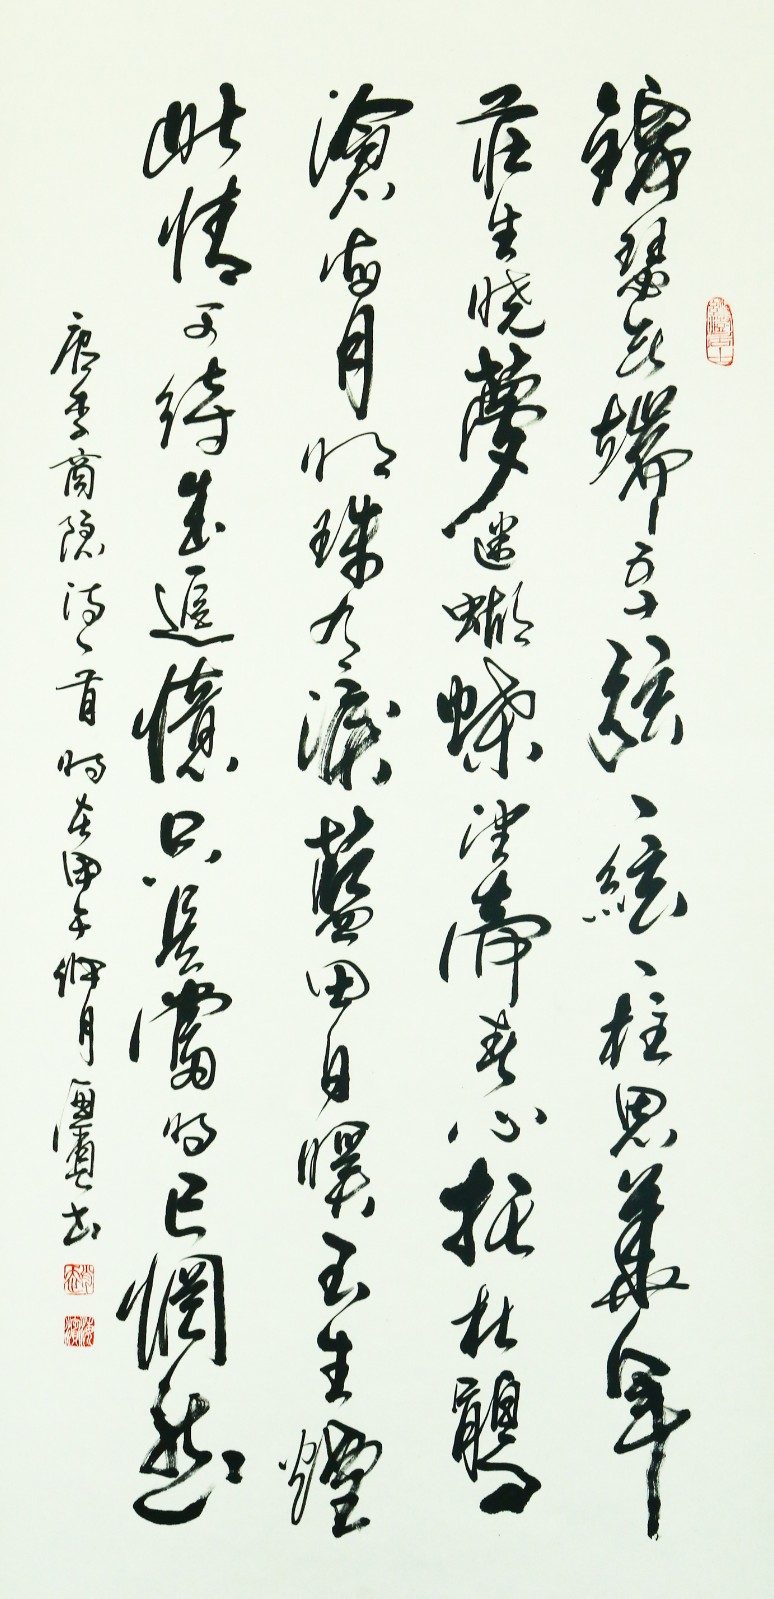 錦瑟無端五十絃一絃一柱思華年
莊生曉夢迷蝴蝶望帝春心托杜鵑
滄海月明珠有淚藍田日暖玉生煙
此情可待成追憶只是當時已惘然
唐李商隱詩一首時在甲午 月 書